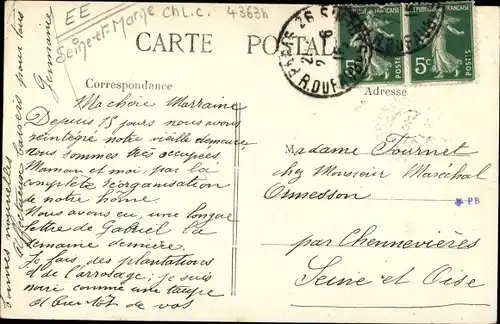 EE
Seine-et-Marne Ch.L.c. 4363h
CARTE POSTALE
PARIS 26
R. DUF
5c
POSTES
5c
POSTES
Correspondance
Adresse
Ma chère Marraine
Depuis 15 jours nous avons
réintégré notre vieille demeure,
nous sommes très occupées,
Maman et moi, par la
complète réorganisation
de notre home.
Nous avons eu une longue
lettre de Gabriel la
semaine dernière.
Je fais, des plantations
et de l'arrosage; je suis
noire comme une taupe
A bientôt de vos
bonnes nouvelles
Affectueux baisers pour tous
Germaine
Madame Fournet
chez Monsieur Maréchal
Ormesson
par Chennevières
Seine et Oise
PB